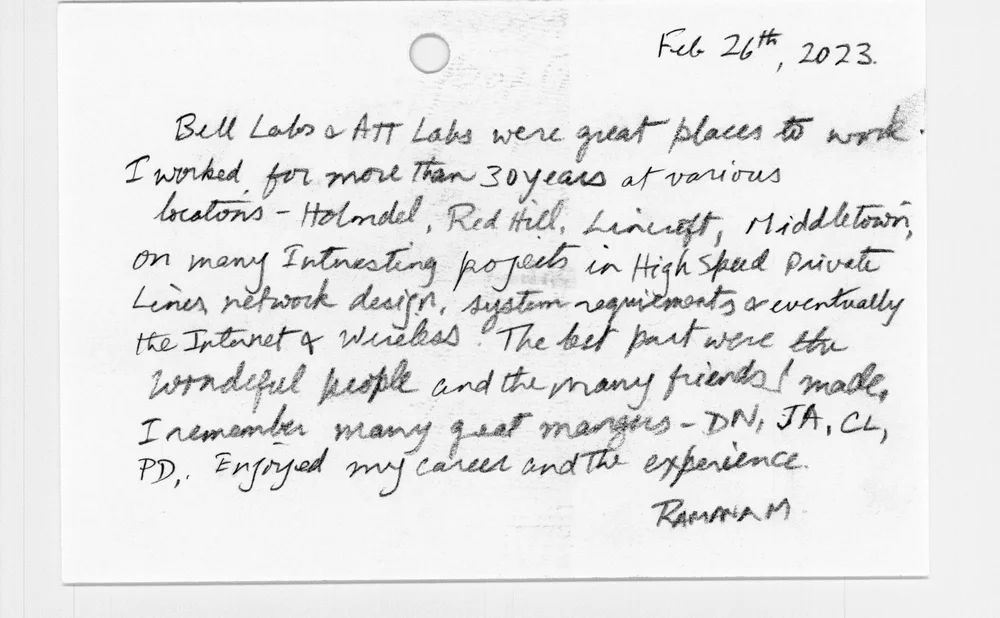 Feb 26th, 2023.
Bell Labs & ATT Labs were great places to work.
I worked for more than 30 years at various
locatons - Holmdel, Red Hill, Lincroft, Middletown,
on many Intresting pojects in High Speed Private
Lines network design, system requirements & eventually
the Internet & Wireless. The best part were the
wondeful people and the many friends I made.
I remember many great mangers - DN, JA, CL,
PD,. Enjoyed my career and the experience.
RAMANA M